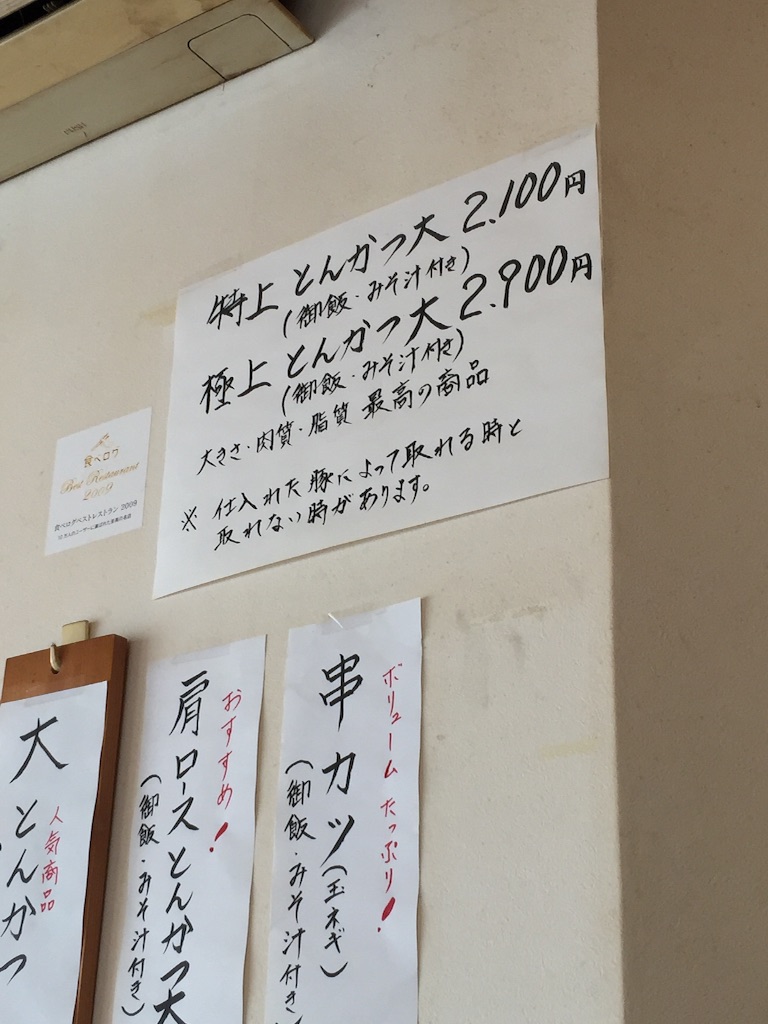 特上 とんかつ大 2.100円
(御飯・みそ汁付き)
極上 とんかつ大 2.900円
(御飯・みそ汁付き)
大きさ・肉質・脂質 最高の商品
※ 仕入れた豚によって取れる時と
取れない時があります。
食べログ
Best Restaurant
2009
食べログベストレストラン 2009
ボリューム たっぷり!
串カツ(玉ネギ)
(御飯・みそ汁付き)
おすすめ!
肩ロースとんかつ大
(御飯・みそ汁付き)
人気商品
大とんかつ